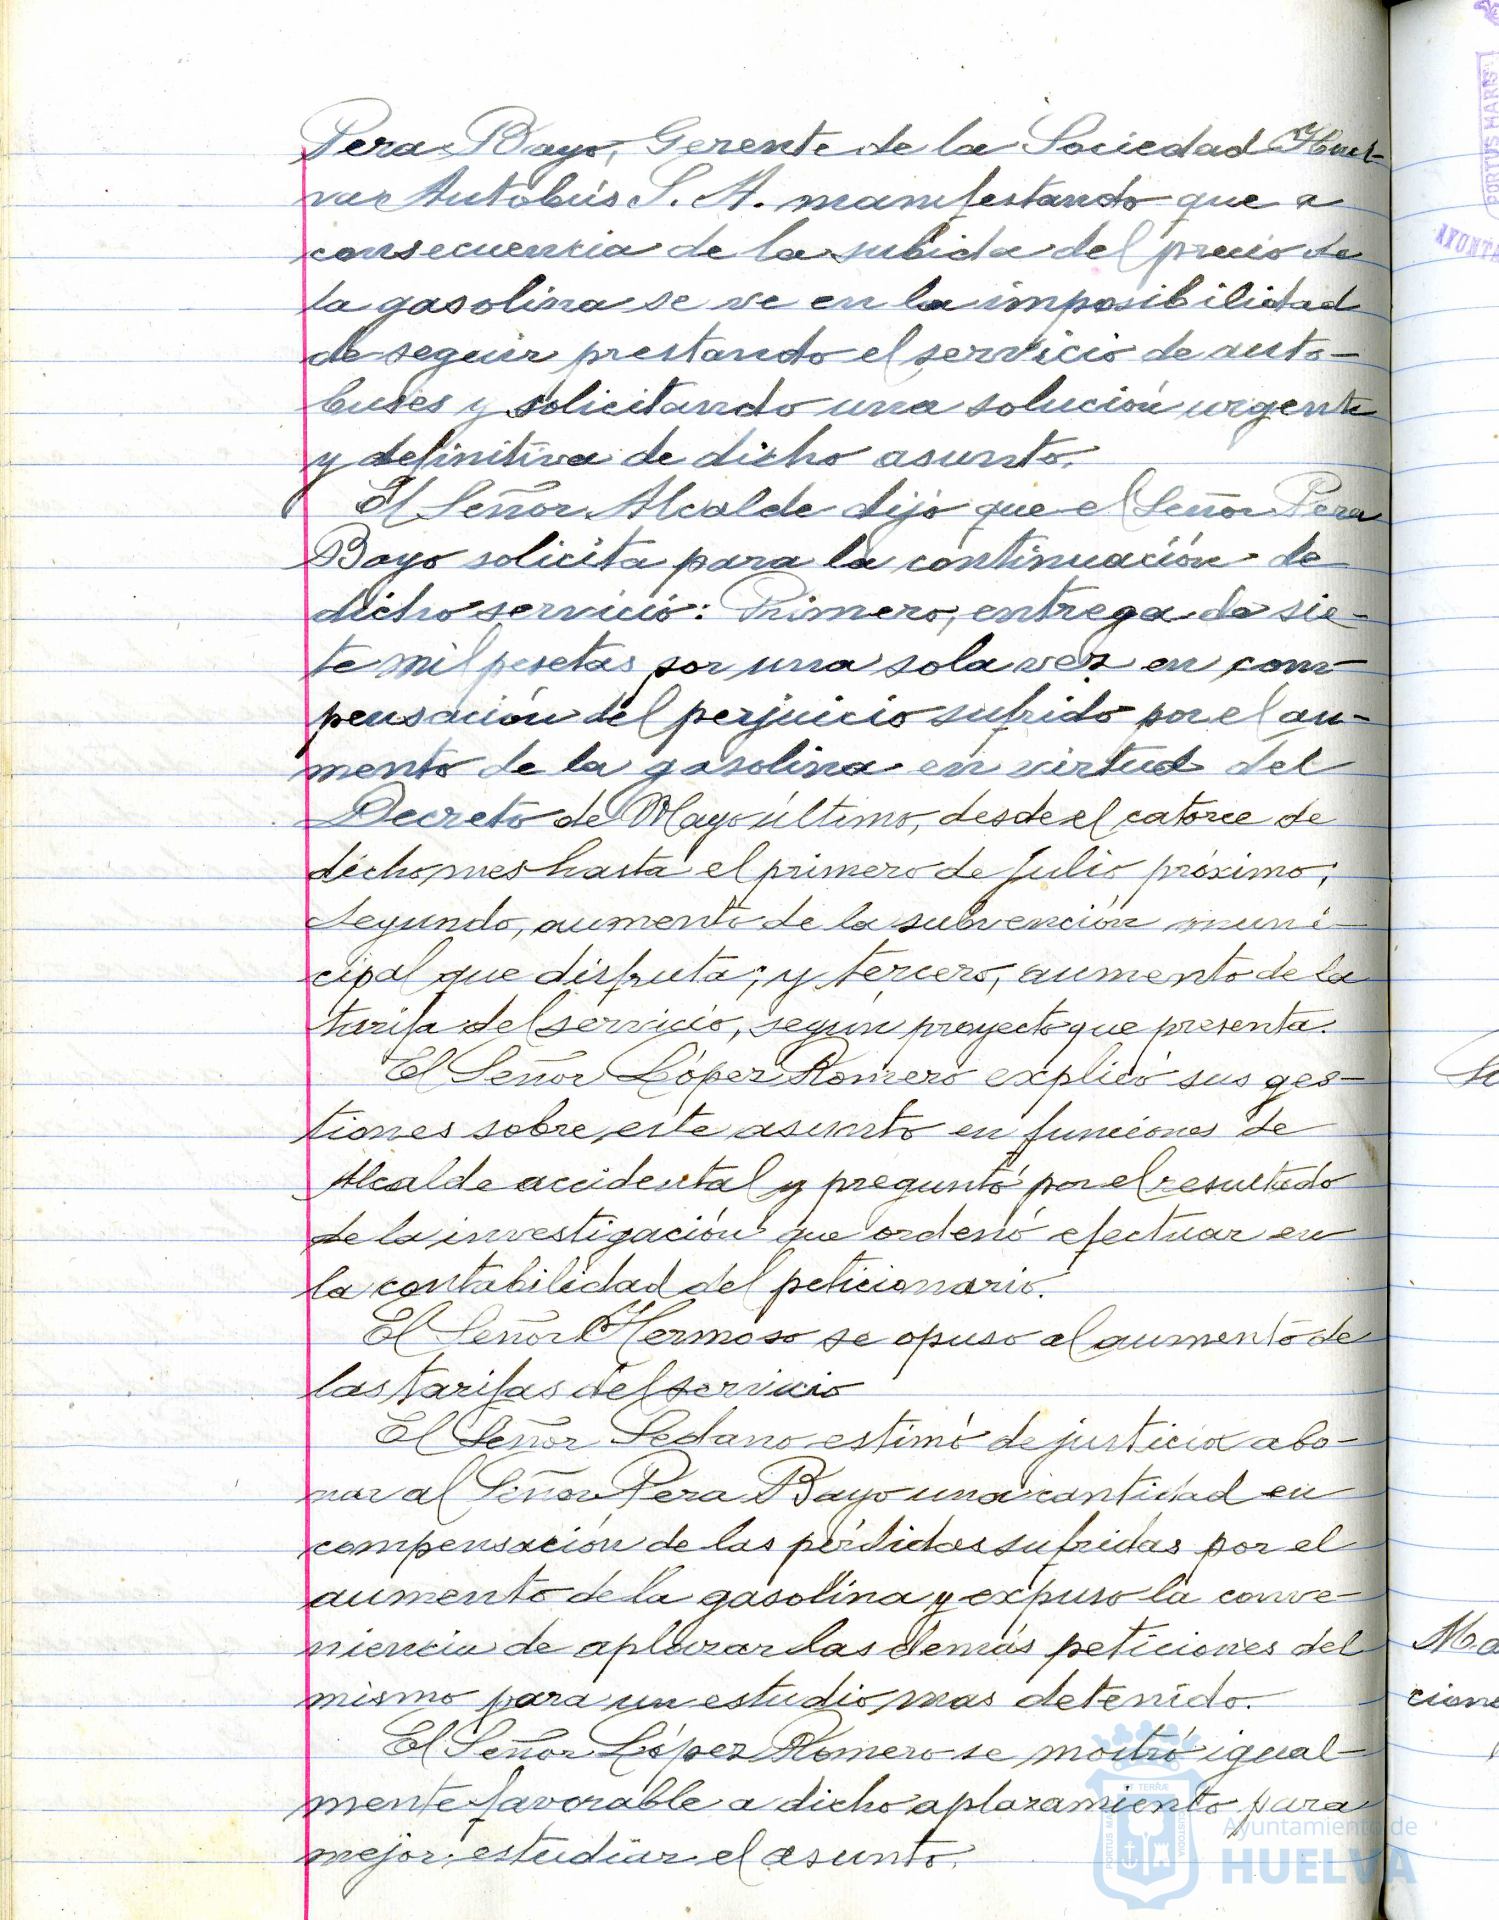 Pera Bayo, Gerente de la Sociedad Huel-
va Autobús S. A. manifestando que a
consecuencia de la subida del precio de
la gasolina se ve en la imposibilidad
de seguir prestando el servicio de auto-
buses y solicitando una solución urgente
y definitiva de dicho asunto.
El Señor Alcalde dijo que el Señor Pera
Bayo solicita para la continuación de
dicho servicio: Primero, entrega de sie-
te mil pesetas por una sola vez en com-
pensación del perjuicio sufrido por el au-
mento de la gasolina en virtud del
Decreto de Mayo último, desde el catorce de
dicho mes hasta el primero de Julio próximo;
Segundo, aumento de la subvención muni-
cipal que disfruta; y tercero, aumento de la
tarifa del servicio, según proyecto que presenta.
El Señor López Romero explicó sus ges-
tiones sobre este asunto en funciones de
Alcalde accidental y preguntó por el resultado
de la investigación que ordenó efectuar en
la contabilidad del peticionario.
El Señor Hermoso se opuso al aumento de
las tarifas del servicio
El Señor Sedano estimó de justicia abo-
nar al Señor Pera Bayo una cantidad en
compensación de las pérdidas sufridas por el
aumento de la gasolina y expuso la conve-
niencia de aplazar las demás peticiones del
mismo para un estudio mas detenido.
El Señor López Romero se mostró igual-
mente favorable a dicho aplazamiento para
mejor estudiar el asunto.
PORTUS MARIS
Ma
cione
Ayuntamiento de
HUELVA